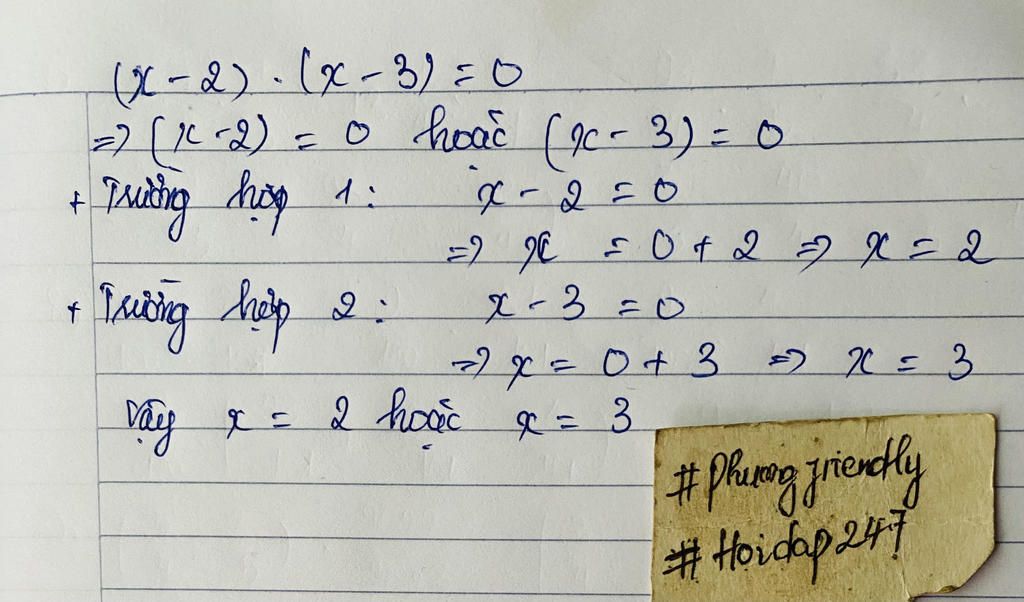 (x - 2) . (x - 3) = 0
=> (x - 2) = 0 hoặc (x - 3) = 0
+ Trường hợp 1: x - 2 = 0
=> x = 0 + 2 => x = 2
+ Trường hợp 2: x - 3 = 0
=> x = 0 + 3 => x = 3
Vậy x = 2 hoặc x = 3
# Phuong friendly
# Hoidap 247